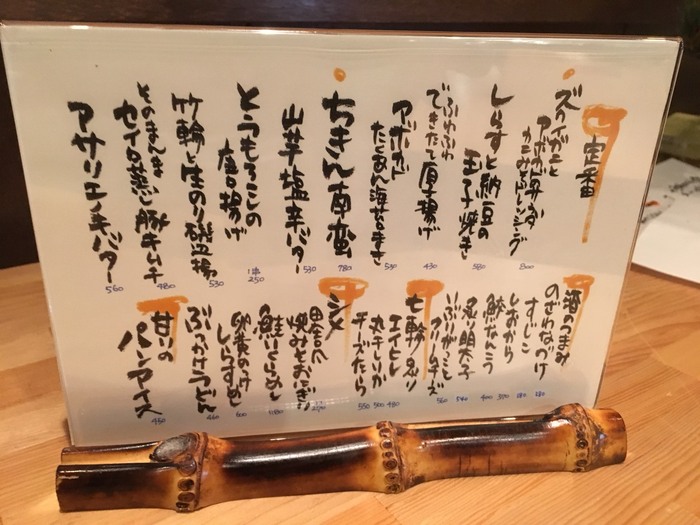 定番
ズワイガニと
アボカド
カニみそドレッシング
800
しらすと納豆の
玉子焼き
580
ふわふわ
できたて厚揚げ
430
アボカド
たくあん海苔まき
530
ちきん南蛮
780
山芋塩辛バター
530
とうもろこしの
唐揚げ
1串
250
竹輪と生のり磯辺揚
530
そのまんま
セイロ蒸し豚キムチ
980
アサリエノキバター
560
酒のつまみ
のざわなづけ
すじこ
しおから
鯨なんこう
炙り明太子
いぶりがっこ
クリームチーズ
560
七輪炙り
エイヒレ
480
丸干しいか
500
チーズたら
550
シメ
田舎風
焼みそおにぎり
250
鮭いくらめし
680
卵黄のっけ
しらすめし
600
ぶっかけうどん
460
甘いの
パンアイス
450